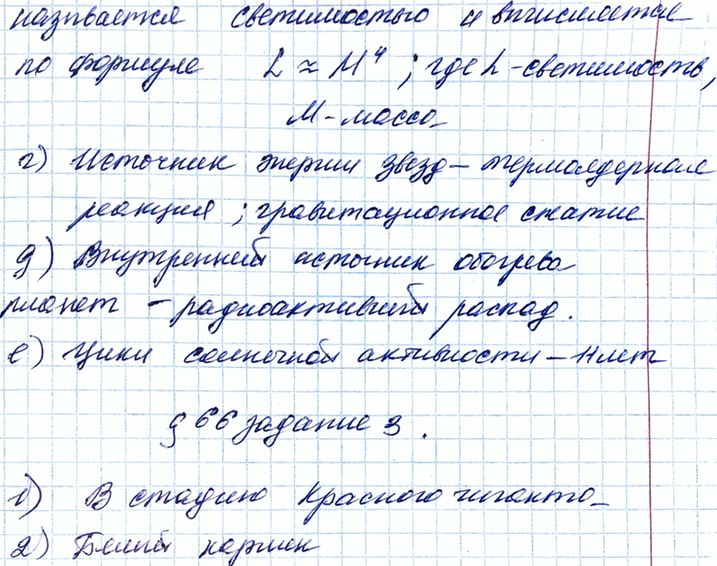 называется светимостью и вычисляется
по формуле L ≈ M⁴ ; где L - светимость,
M - масса
г) Источник энергии звезд - термоядерные
реакция ; гравитационное сжатие
д) Внутренний источник обогрева
планет - радиоактивный распад.
е) Цикл солнечной активности - 11 лет
§ 66 задание 3.
1) В стадию Красного гиганта
2) Белый карлик